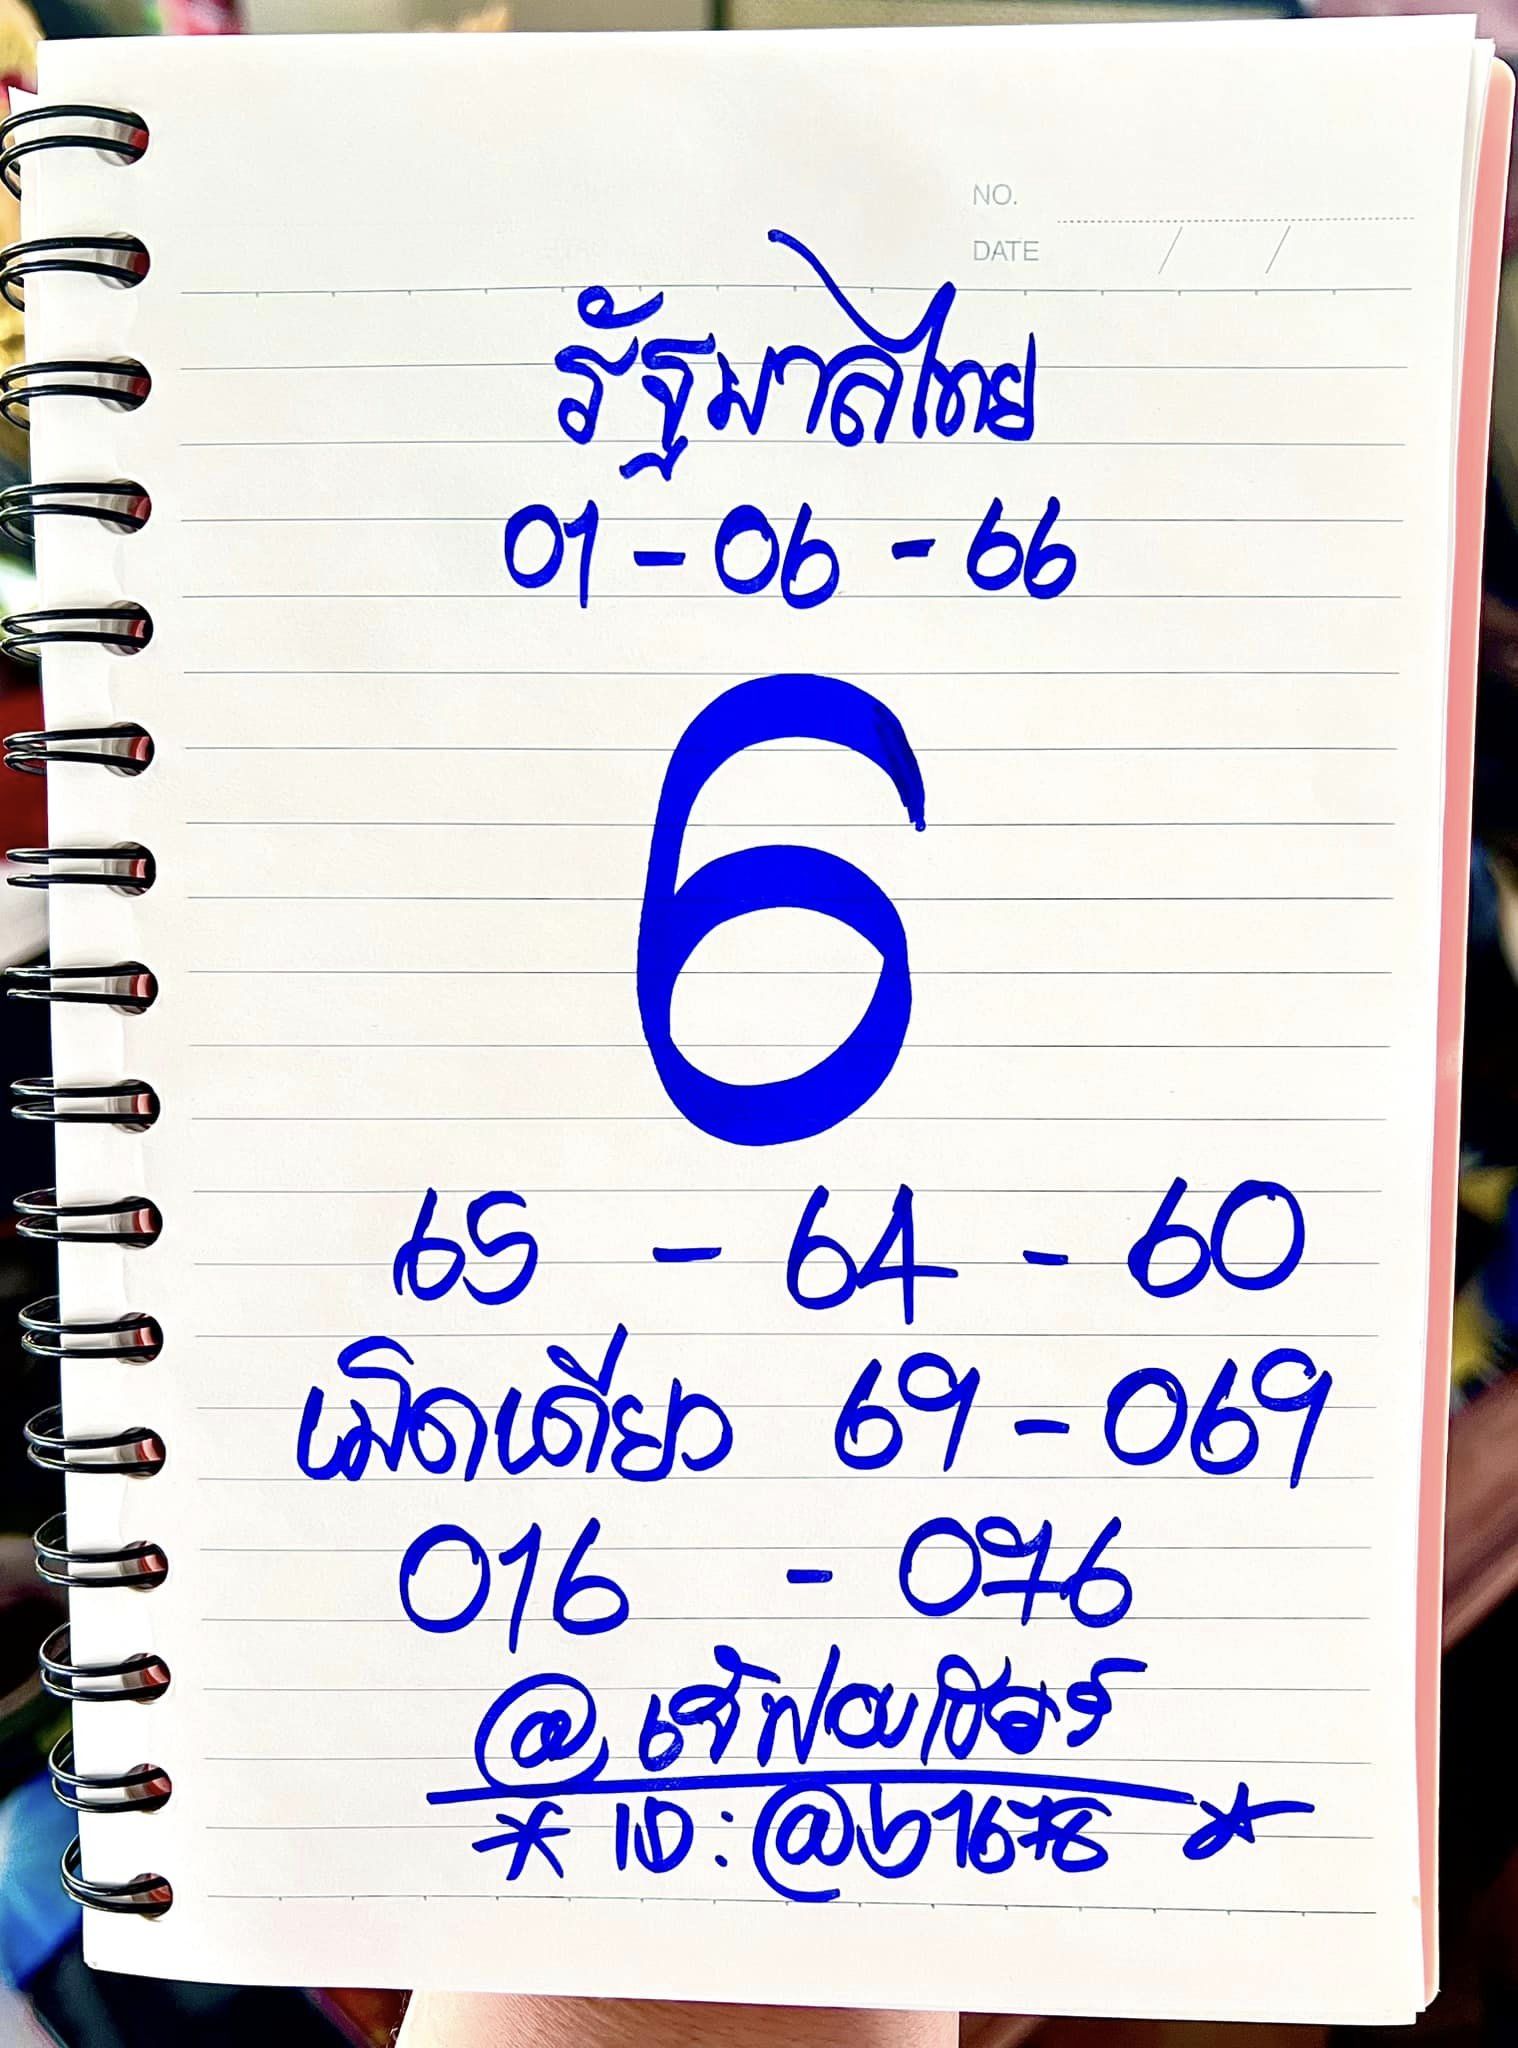 NO.
DATE / /
รัฐบาลไทย
01-06-66
6
65 - 64 - 60
เม็ดเดียว 69-069
016 - 076
@เจ๊ฟองเบียร์
* ID:@b1678 *